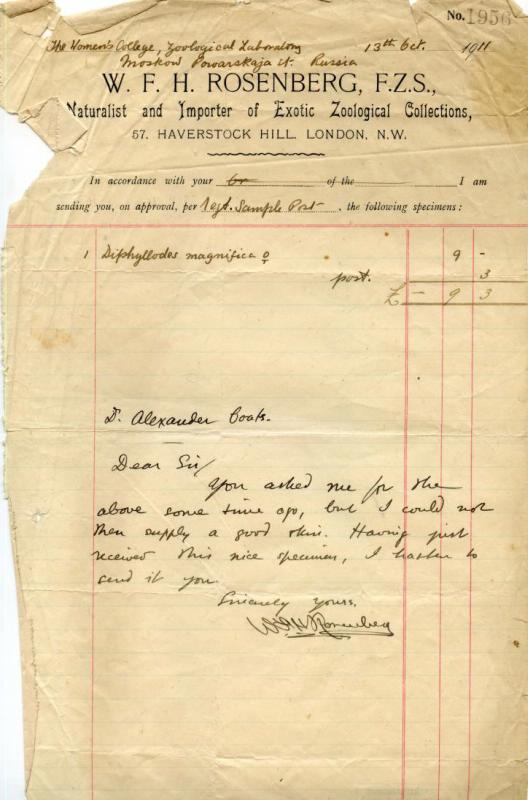 No. 1956
The Women's College, Zoological Laboratory 13th Oct. 1911
Moskow Powarskaja st. Russia
W. F. H. ROSENBERG, F.Z.S.,
Naturalist and Importer of Exotic Zoological Collections,
57, HAVERSTOCK HILL, LONDON, N.W.
In accordance with your of the I am
sending you, on approval, per 1 egt. Sample Post, the following specimens:
1 Diphyllodes magnifica ♀ 9 -
post. 3
£ - 9 3
Dr. Alexander Coats.
Dear Sir/
You asked me for the
above some time ago, but I could not
then supply a good skin. Having just
received this nice specimen, I hasten to
send it you.
Sincerely yours,
WFH Rosenberg